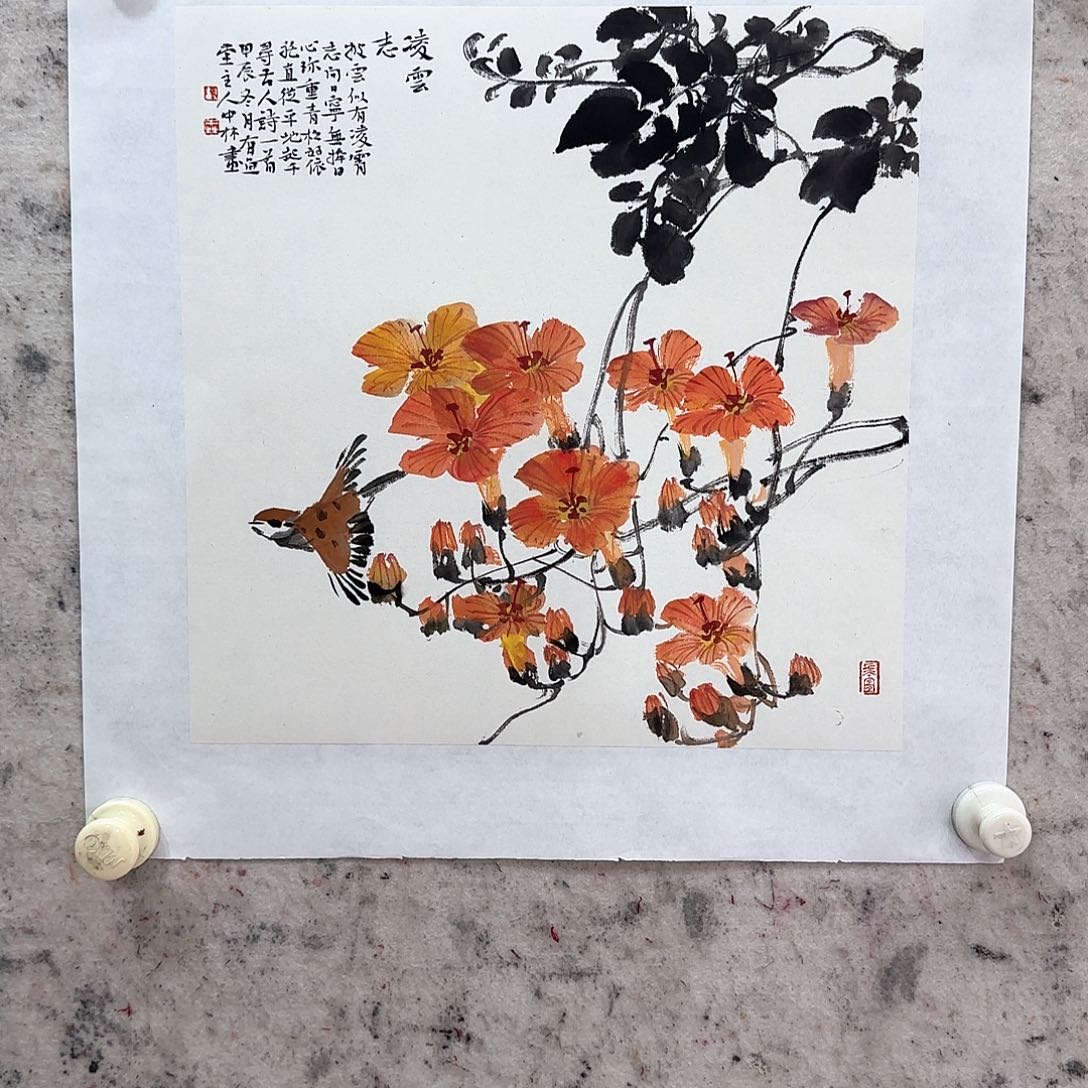 凌雲
志
披雲似有凌霄
志向日寧無捧日
心珎重青松好依
托直從平地起千
尋古人詩一首
甲辰冬月有
主人中林畫